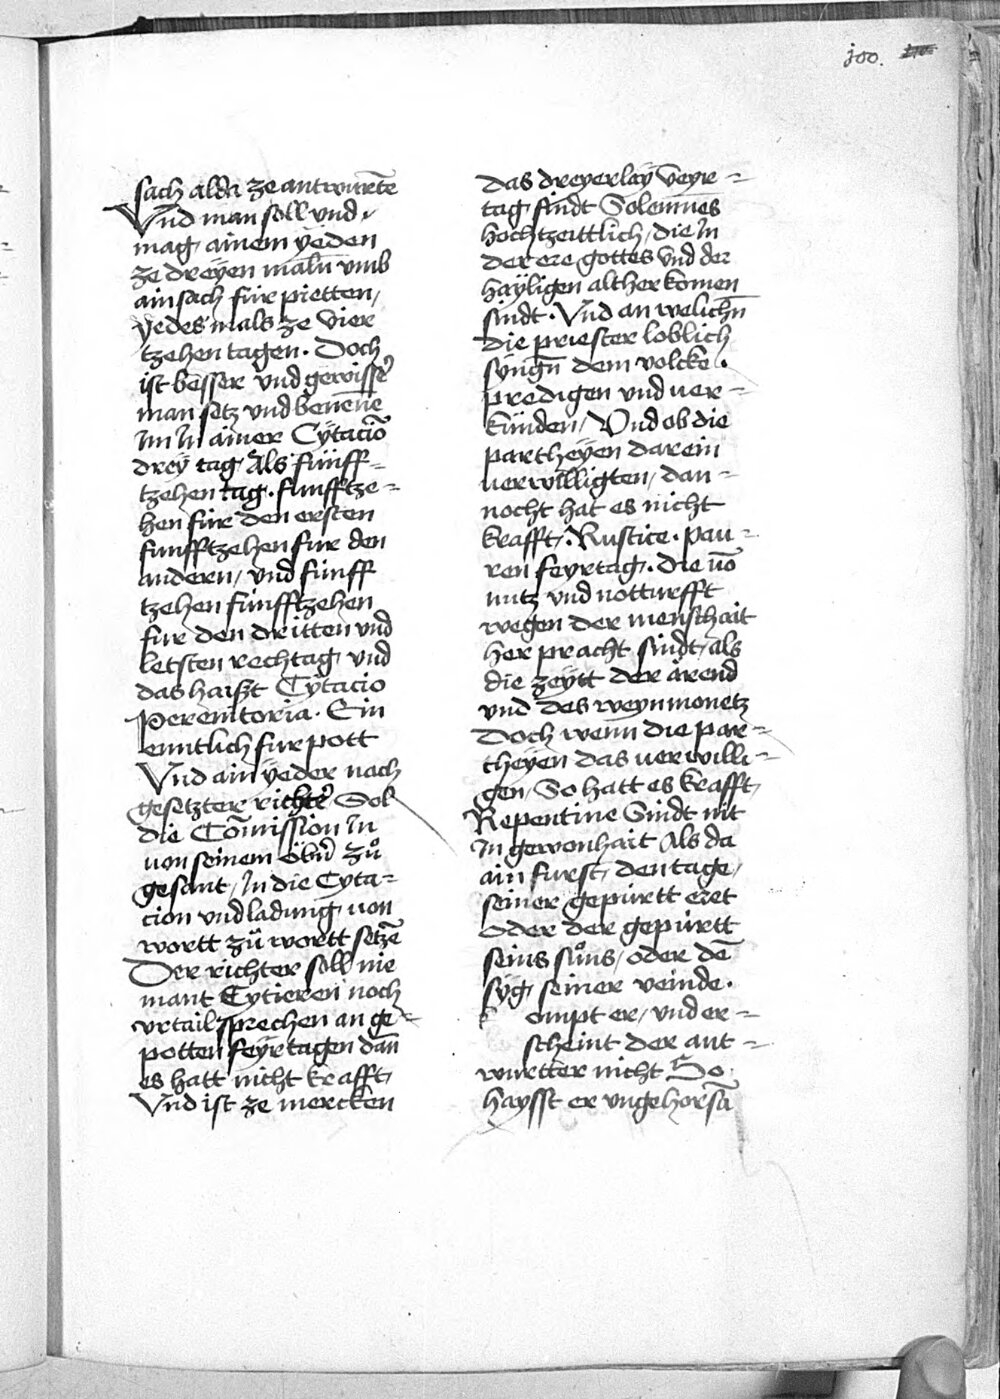 100.
sach alda ze antwurtē
Vnd man soll vnd
mag ainem yeden
ze dreyen maln vmb
ain sach für pietten /
yedes mals ze vier
tzehen tagen · Doch
ist besser vnd gewisser
man setz vnd benenne
Im In ainer Cytaciō
drey tag Als fünff =
tzehen tag · funfftze =
hen für den ersten
funfftzehen fur den
andern / vnd fünff
tzehen fünfftzehen
fur den dritten vnd
letsten rechtag vnd
das haißt Cytacio
Peremtoria · Ein
enntlich furpott
Vnd ain yeder nach
gesetzter richter Sol
die Cōmission In
von seinem öbrñ zů
gesant / In die Cyta =
cion vnd ladung von
wortt zů wortt setzē
Der richter soll nie
mant Cytieren noch
vrtail sprechen an ge =
potten feyrtagen dañ
es hatt nicht krafft
Vnd ist ze mercken
das dreyerlay veyr =
tag sindt Solennes
hochtzeittlich / die In
der ere gottes vnd der
hayligen altherkomen
sindt · Vnd an welichn̄
die priester loblich
syngn̄ dem volcke ·
predigen vnd ver =
künden / Vnd ob die
partheyen darein
verwilligten / dan =
nocht hat es nicht
krafft / · Rustice · pau =
ren feyrtag · die vō
nutz vnd notturfft
wegen der menschait
her pracht sindt / als
die zeytt der ärend
vnd des weynmonetz
Doch wenn die par =
theyen das verwilli =
gen / So hatt es krafft /
Repentine Sindt nit
In gewonhait Als da
ain furst / den tage /
seiner gepurtt eret
oder der gepürtt
seins sůns / oder dē
syg seiner veinde ·
k ompt er / vnd er =
scheint der ant =
wurtter nicht So
haysst er vngehorsā